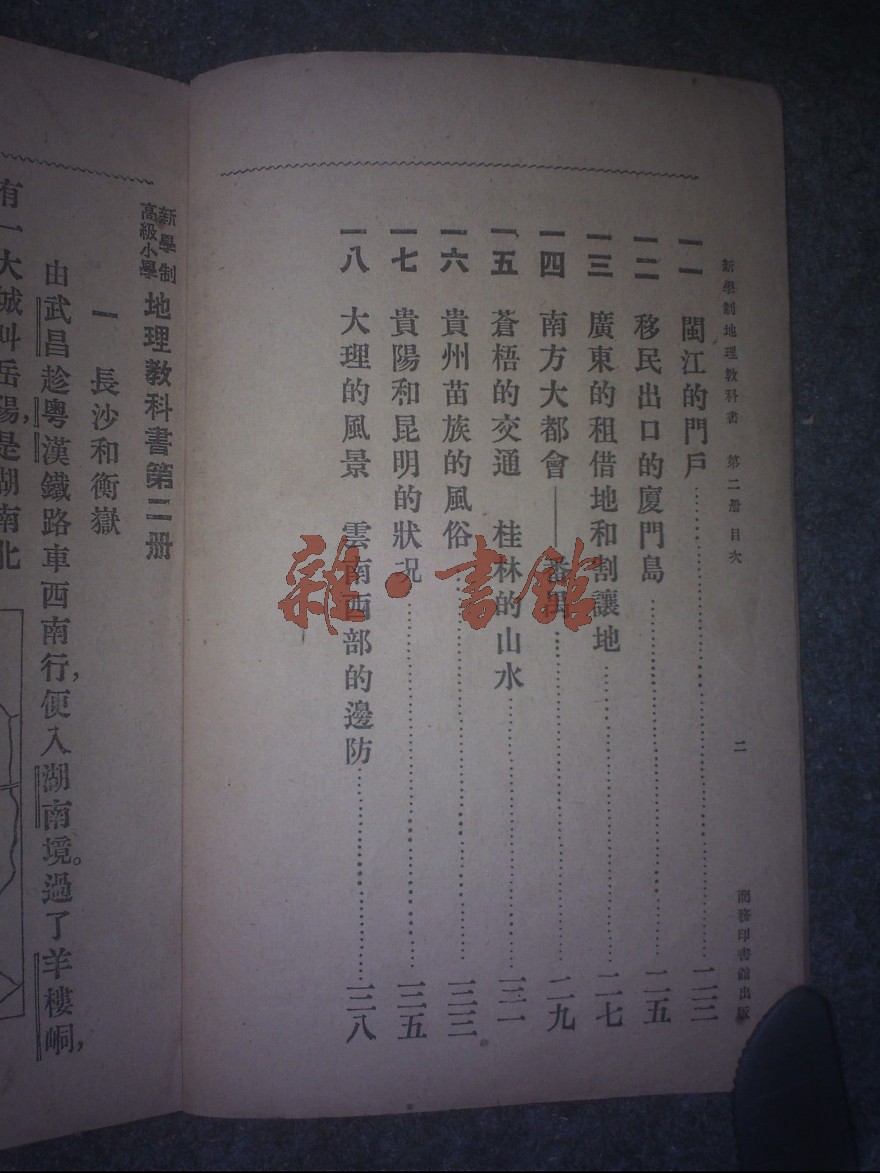 新學制地理教科書 第二册 目次
二
商務印書館出版
一一 閩江的門戶……二三
一二 移民出口的廈門島……二五
一三 廣東的租借地和割讓地……二七
一四 南方大都會——番禺……二九
一五 蒼梧的交通 桂林的山水……三一
一六 貴州苗族的風俗……三三
一七 貴陽和昆明的狀況……三五
一八 大理的風景 雲南西部的邊防……三八
雜·書館
新學制
高級小學
地理教科書第二册
一 長沙和衡嶽
由武昌趁粵漢鐵路車西南行,便入湖南境。過了羊樓峒,
有一大城叫岳陽,是湖南北